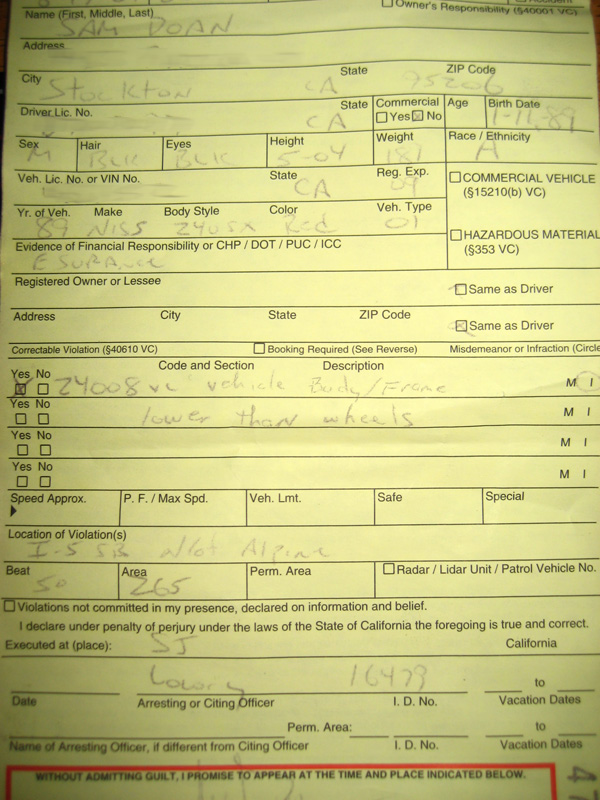 Owner's Responsibility (§40001 VC)
Name (First, Middle, Last)
SAM DOAN
Address
City State ZIP Code
Stockton CA 95206
Driver Lic. No. State Commercial Age Birth Date
CA Yes No 1-11-89
Sex Hair Eyes Height Weight Race / Ethnicity
M BLK BLK 5-04 181 A
Veh. Lic. No. or VIN No. State Reg. Exp.
CA COMMERCIAL VEHICLE
(§15210(b) VC)
Yr. of Veh. Make Body Style Color Veh. Type
89 NISS 240SX Red 01
HAZARDOUS MATERIAL
(§353 VC)
Evidence of Financial Responsibility or CHP / DOT / PUC / ICC
ESURANCE
Registered Owner or Lessee
Same as Driver
Address City State ZIP Code
Same as Driver
Correctable Violation (§40610 VC) Booking Required (See Reverse) Misdemeanor or Infraction (Circle
Yes No Code and Section Description
24008 vc vehicle Body/Frame M I
Yes No
lower than wheels M I
Yes No
M I
Yes No
M I
Speed Approx. P. F. / Max Spd. Veh. Lmt. Safe Special
Location of Violation(s)
I-5 SB n/of Alpine
Beat Area Perm. Area Radar / Lidar Unit / Patrol Vehicle No.
50 265
Violations not committed in my presence, declared on information and belief.
I declare under penalty of perjury under the laws of the State of California the foregoing is true and correct.
Executed at (place): SJ California
Lowry 16479 to
Date Arresting or Citing Officer I. D. No. Vacation Dates
Perm. Area: to
Name of Arresting Officer, if different from Citing Officer I. D. No. Vacation Dates
WITHOUT ADMITTING GUILT, I PROMISE TO APPEAR AT THE TIME AND PLACE INDICATED BELOW.
47